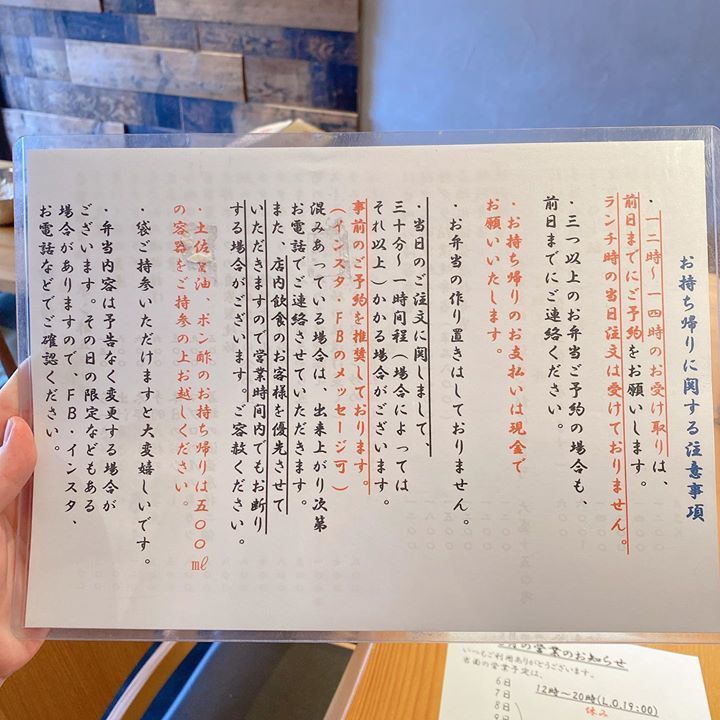 お持ち帰りに関する注意事項
・一二時～一四時のお受け取りは、
前日までにご予約をお願いします。
ランチ時の当日注文は受けておりません。
・三つ以上のお弁当ご予約の場合も、
前日までにご連絡ください。
・お持ち帰りのお支払いは現金で
お願いいたします。
・お弁当の作り置きはしておりません。
・当日のご注文に関しまして、
三十分～一時間程(場合によっては
それ以上)かかる場合がございます。
事前のご予約を推奨しております。
(インスタ・FBのメッセージ可)
混みあっている場合は、出来上がり次第
お電話でご連絡させていただきます。
また、店内飲食のお客様を優先させて
いただきますので営業時間内でもお断り
する場合がございます。ご容赦ください。
・土佐醤油、ポン酢のお持ち帰りは五〇〇㎖
の容器をご持参の上お越しください。
・袋ご持参いただけますと大変嬉しいです。
・弁当内容は予告なく変更する場合が
ございます。その日の限定などもある
場合がありますので、FB・インスタ、
お電話などでご確認ください。
の営業のお知らせ
いつもご利用ありがとうございます。
当面の営業予定は、
6日
7日 12時～20時(L.O.19:00)
8日 休み
9日